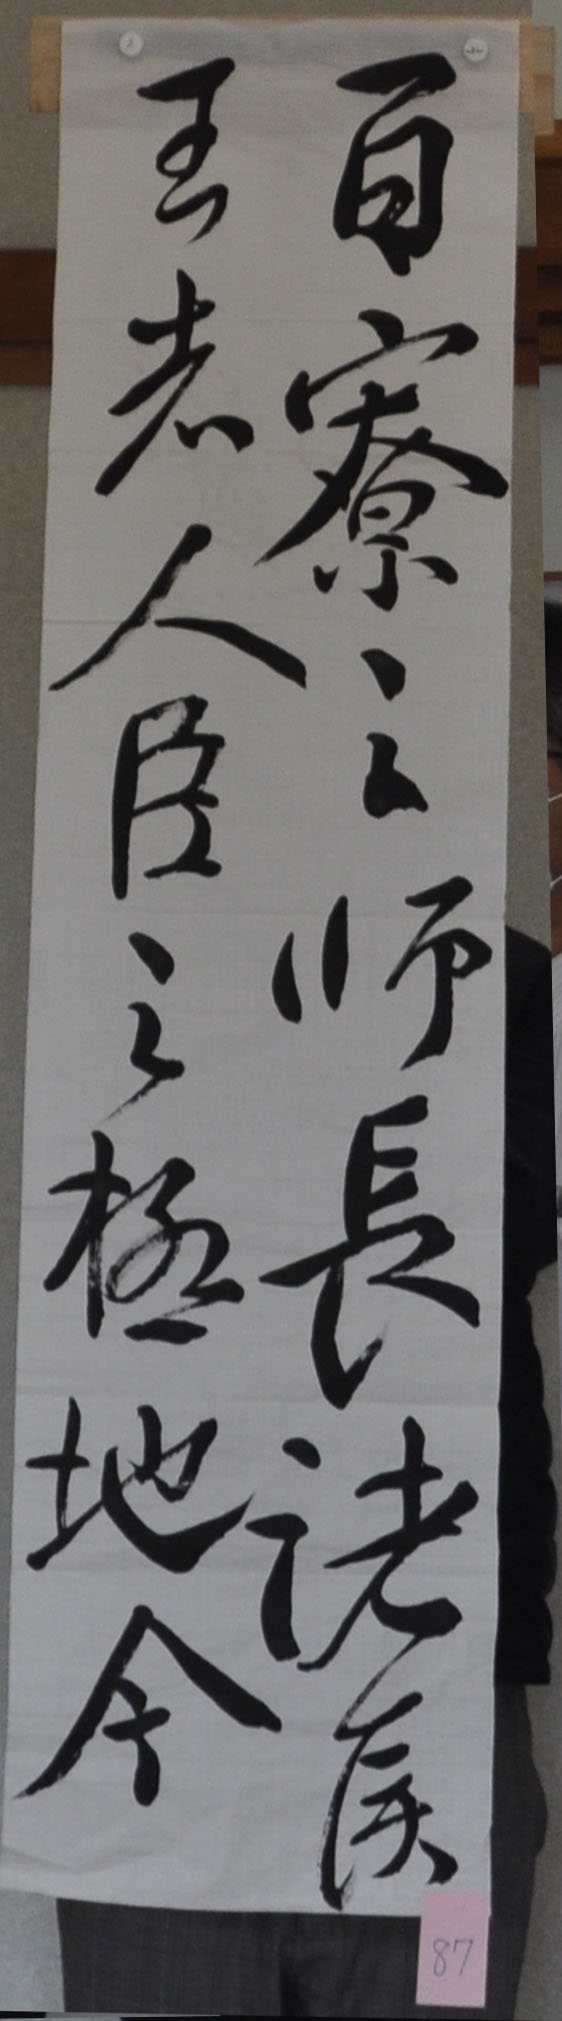 百寮之師長諸侯
王者人臣之極地今
87